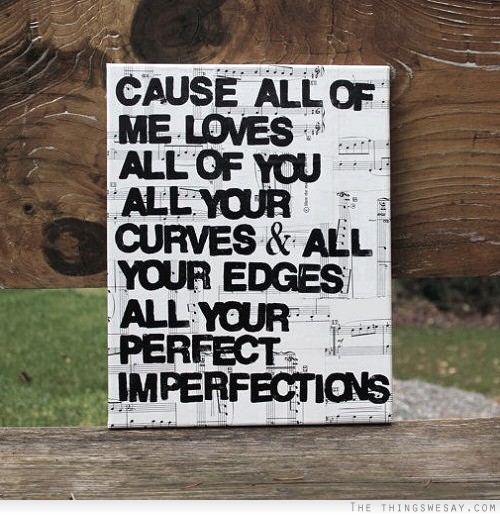 CAUSE ALL OF
ME LOVES
ALL OF YOU
ALL YOUR
CURVES & ALL
YOUR EDGES
ALL YOUR
PERFECT
IMPERFECTIONS
THE THINGSWESAY.COM